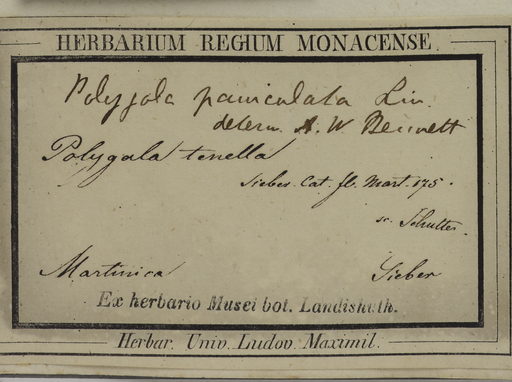 HERBARIUM REGIUM MONACENSE.
Polygala paniculata Lin.
determ. A. W Bennett
Polygala tenella
Sieber. Cat. fl. Mart. 175.
sc. Schultes.
Martinica Sieber
Ex herbario Musei bot. Landishuth.
Herbar. Univ. Ludov. Maximil.